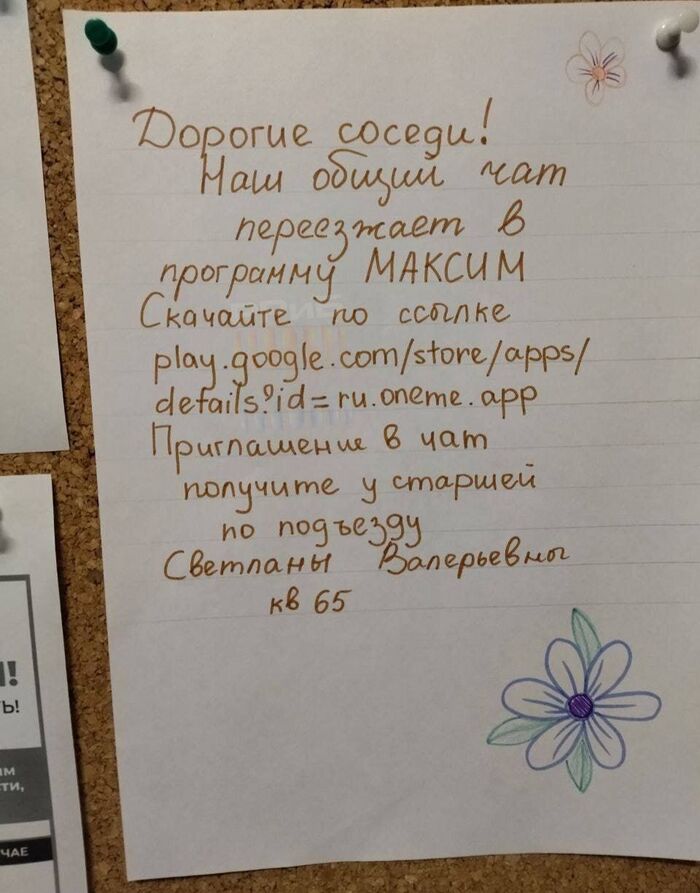 Дорогие соседи!
Наш общий чат
переезжает в
программу МАКСИМ
Скачайте по ссылке
play.google.com/store/apps/
details?id=ru.oneme.app
Приглашение в чат
получите у старшей
по подъезду
Светланы Валерьевны
кв 65
!
Ь!
ЧАЕ